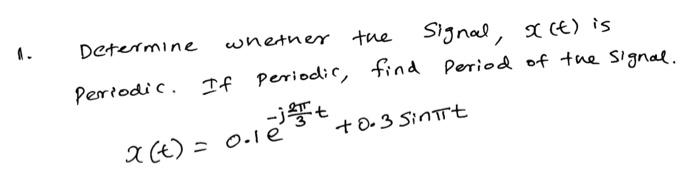 1. Determine whether the Signal, x(t) is
Periodic. If Periodic, find Period of the Signal.
x(t) = 0.1e^{-j\frac{2π}{3}t} + 0.3 Sinπt